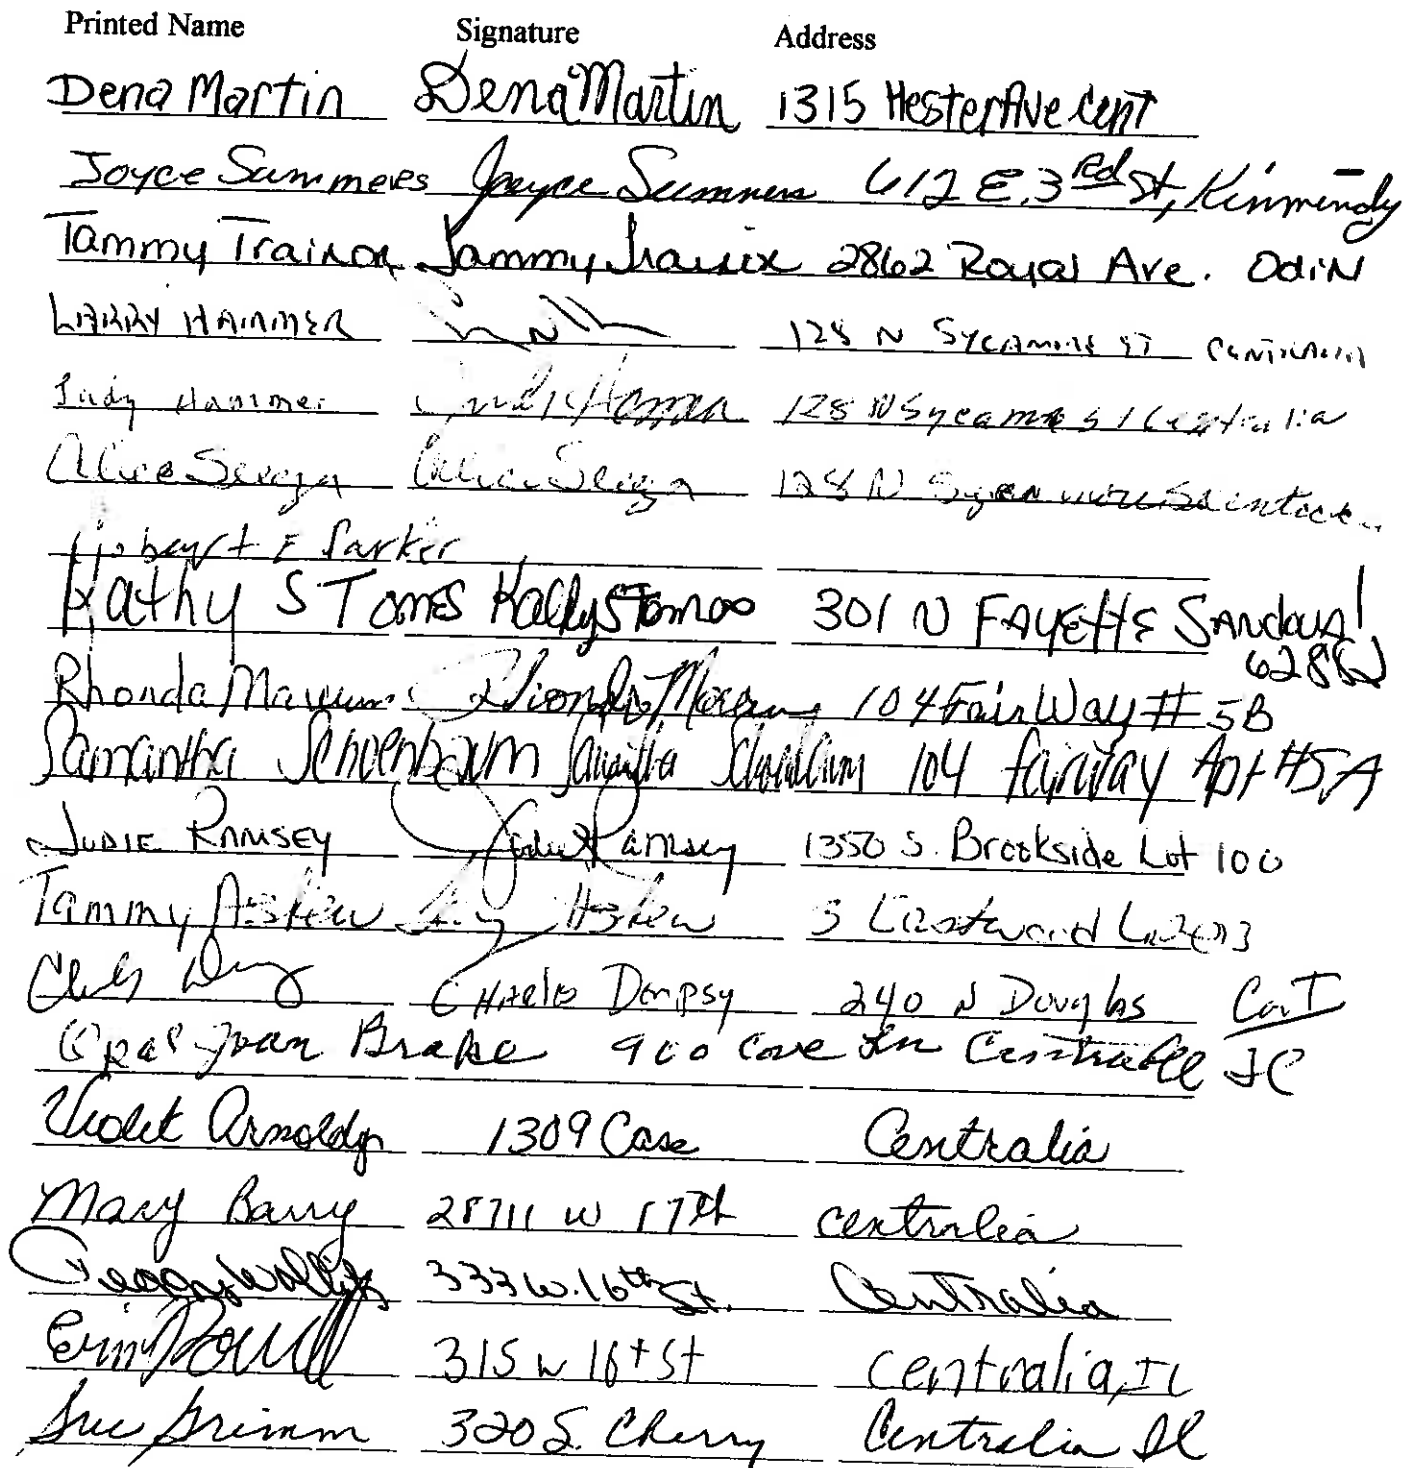 Printed Name Signature Address
Dena Martin Dena Martin 1315 Hester Ave Cent
Joyce Summers Joyce Summers 612 E. 3rd St, Kinmundy
Tammy Trainor Tammy 2862 Royal Ave. Odin
LARRY HAMMER 128 N SYCAMORE ST CENTRALIA
Judy Hammer 128 N Sycamore St Centralia
Alice Alice 128 N
Robert E Parker
Kathy S Toms Kathy S Toms 301 N FAYETTE SANDOVAL
62882
Rhonda Rhonda 104 Fair Way # 5B
Samantha Schoenbaum Samantha Schoenbaum 104 fairway Apt #5A
JUDIE RAMSEY Judie Ramsey 1350 S. Brookside Lot 100
Tammy Askew Askew S Eastwood
Charles Dempsy 240 N Douglas Cent
Opal Joan Brake 900 Case Ln Centralia IL
Violet Arnold 1309 Case Centralia
Mary Barry 28711 W 17th Centralia
Peggy 333 W. 16th St. Centralia
Erin Powell 315 W 16t St Centralia, IL
Sue Grimm 320 S. Cherry Centralia Il